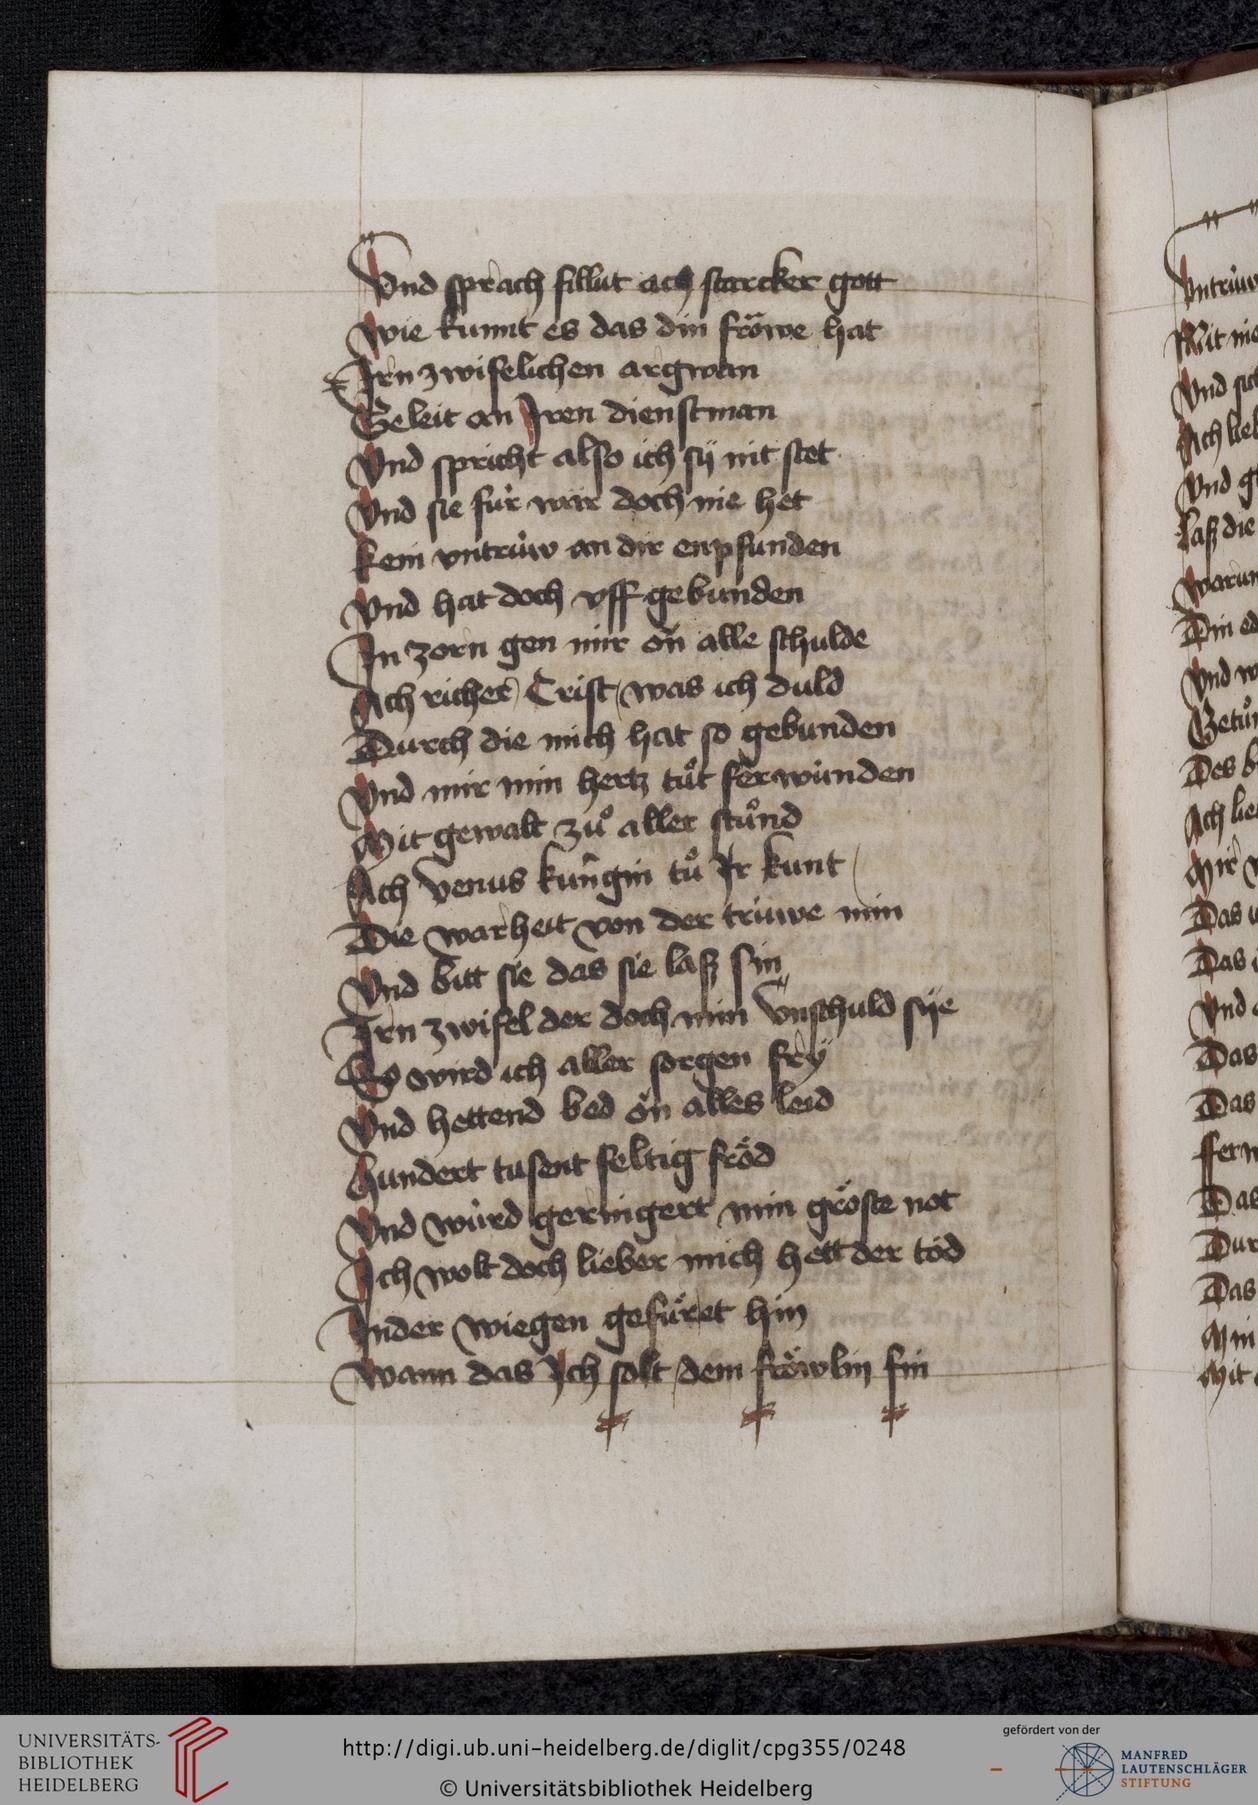 Vnd sprach fillut ach starcker gott
Wie kumt es das din fröwe hat
Irn zwifelichen argwan
Geleit an Iren dienstman
Vnd spricht also ich sÿ nit stet
Vnd sie für war doch nie het
Kein vntrüw an dir enpfunden
Vnd hat doch vff gebunden
In zorn gen mir on alle schulde
Ach richer Crist was ich duld
Durch die mich hat so gebunden
Vnd mir min hertz tuͦt ferwunden
Mit gewalt zuͦ aller stuͦnd
Ach venus küngin tuͦ Ir kunt
Die warheit von der trüwe min
Vnd bitt sie das sie laß sin
Irn zwifel der doch min vnschuld sÿe
So wird ich aller sorgen frÿ
Vnd hettend bed on alles leid
Hundert tusent feltig fröd
Vnd würd geringert min gröste not
Ich wolt doch lieber mich hett der tod
Inder wiegen gefüret hin
Wann das Ich solt dem fröwlin fin
Mit
Vnd
Ach
Vnd
Laß die
Vnd
Des
Ach
Mir
Das
Das
Vnd
Das
Das
Das
Dur
Das
Min
Mit
UNIVERSITÄTS-
BIBLIOTHEK
HEIDELBERG
http://digi.ub.uni-heidelberg.de/diglit/cpg355/0248
© Universitätsbibliothek Heidelberg
gefördert von der
MANFRED
LAUTENSCHLÄGER
STIFTUNG